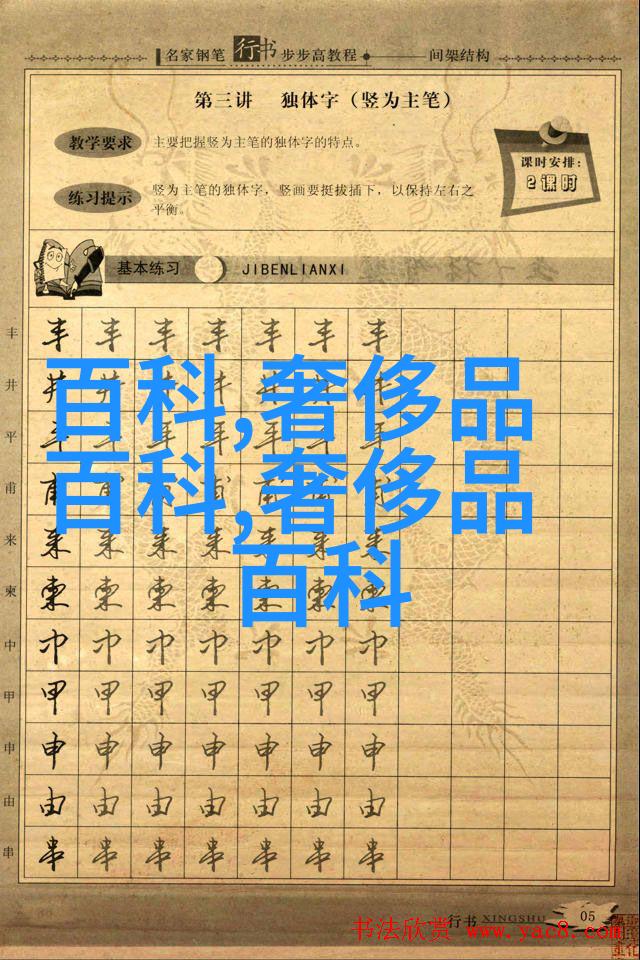 名家钢笔 行书 步步高教程 间架结构
第三讲 独体字（竖为主笔）
教学要求 主要把握竖为主笔的独体字的特点。
课时安排：
2课时
练习提示 竖为主笔的独体字，竖画要挺拔插下，以保持左右之
平衡。
基本练习 JIBENLIANXI
丰 丰 丰 丰 丰 丰 丰 丰
井 井 井 井 井 井 井 井
平 平 平 平 平 平 平 平
甫 甫 甫 甫 甫 甫 甫 甫
来 来 来 来 来 来 来 来
柬 柬 柬 柬 柬 柬 柬 柬
中 中 中 中 中 中 中 中
甲 甲 甲 甲 甲 甲 甲 甲
申 申 申 申 申 申 申 申
由 由 由 由 由 由 由 由
串 串 串 串 串 串 串 串
百科,奢侈品
百科,奢侈品
百科
行书 XINGSHU 05
书法欣赏 www.yac8.com